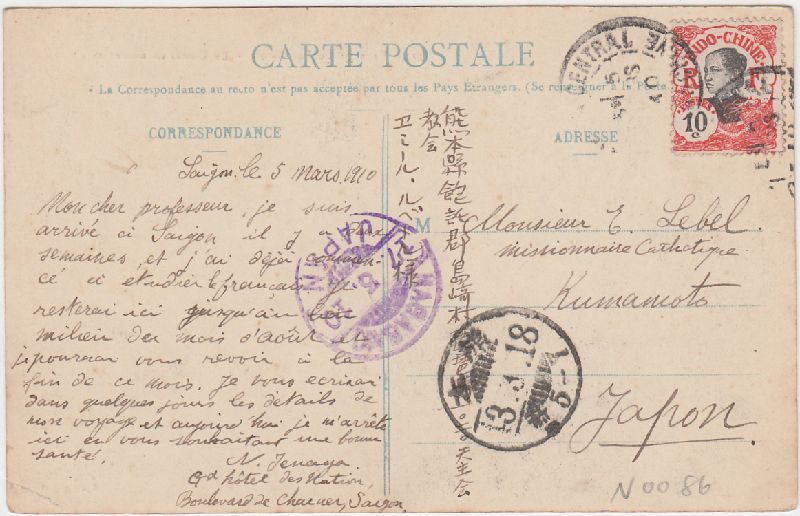 CARTE POSTALE
La Correspondance au recto n'est pas acceptée par tous les Pays Etrangers. (Se renseigner à la Poste.
CORRESPONDANCE
Saigon. le 5 Mars. 1910
Mon cher professeur, je suis
arrivé à Saigon il y a deux
semaines et j'ai déjà commen-
cé à étudier le français. Je
resterai ici jusqu'au
milieu du mois d'août et
je pourrai vous revoir à la
fin de ce mois. Je vous écrirai
dans quelques jours les détails de
mon voyage et aujourd'hui je m'arrête
ici en vous souhaitant une bonne
santé.
N. Jenaga
Gd hôtel des Nation,
Boulevard de Charner, Saigon
ADRESSE
M
Monsieur E. Lebel
missionnaire Catholique
Kumamoto
Japon
熊本縣飽託郡島崎村
天主会
教会
エミール・ルベル様
INDO-CHINE
R F
10 c
CENTRAL
NAGASAKI
JAPAN
17
3
10
熊本
43.3.18
5-
N0086